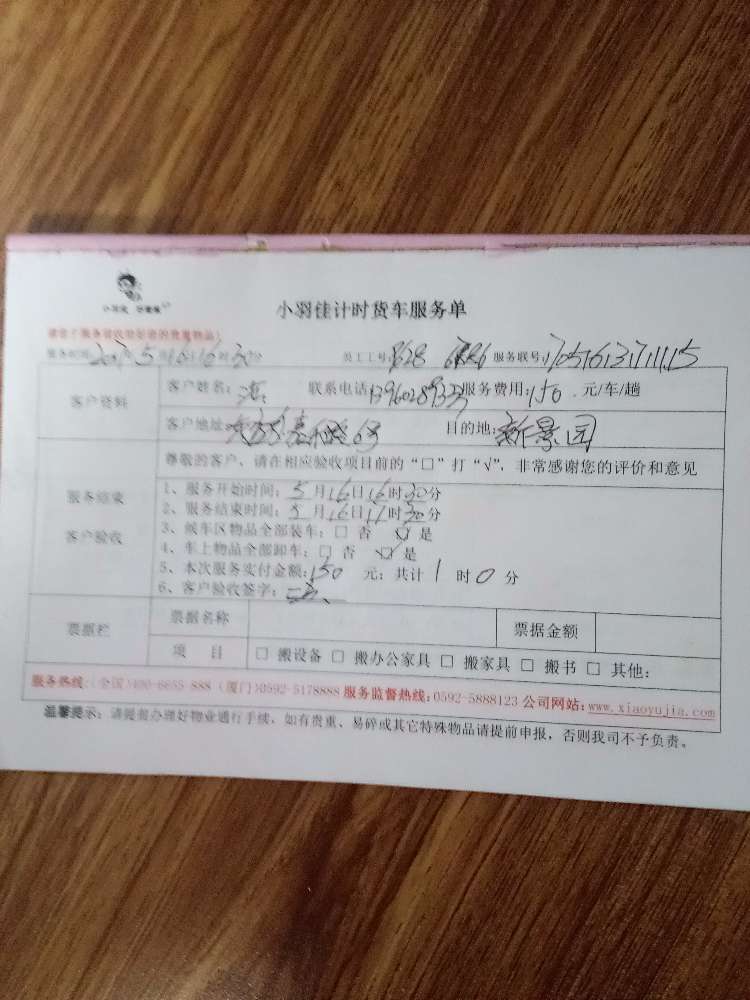 小羽佳计时货车服务单
请客户服务前收拾好您的贵重物品!
服务时间: 2017年5月16日16时30分 员工工号: 服务联号:
客户资料
客户姓名: 联系电话: 服务费用: 150 元/车/趟
客户地址: 目的地: 新景园
尊敬的客户、请在相应验收项目前的“□”打“√”, 非常感谢您的评价和意见
服务结束
客户验收
1、服务开始时间: 5月16日16时30分
2、服务结束时间: 5月16日17时30分
3、候车区物品全部装车: □ 否 ☑ 是
4、车上物品全部卸车: □ 否 ☑ 是
5、本次服务实付金额: 150 元; 共计 1 时 0 分
6、客户验收签字:
票据栏
票据名称 票据金额
项 目 □ 搬设备 □ 搬办公家具 □ 搬家具 □ 搬书 □ 其他:
服务热线:(全国)400-6655-888 (厦门)0592-5178888 服务监督热线:0592-5888123 公司网站:www.xiaoyujia.com
温馨提示: 请提前办理好物业通行手续, 如有贵重、易碎或其它特殊物品请提前申报, 否则我司不予负责。